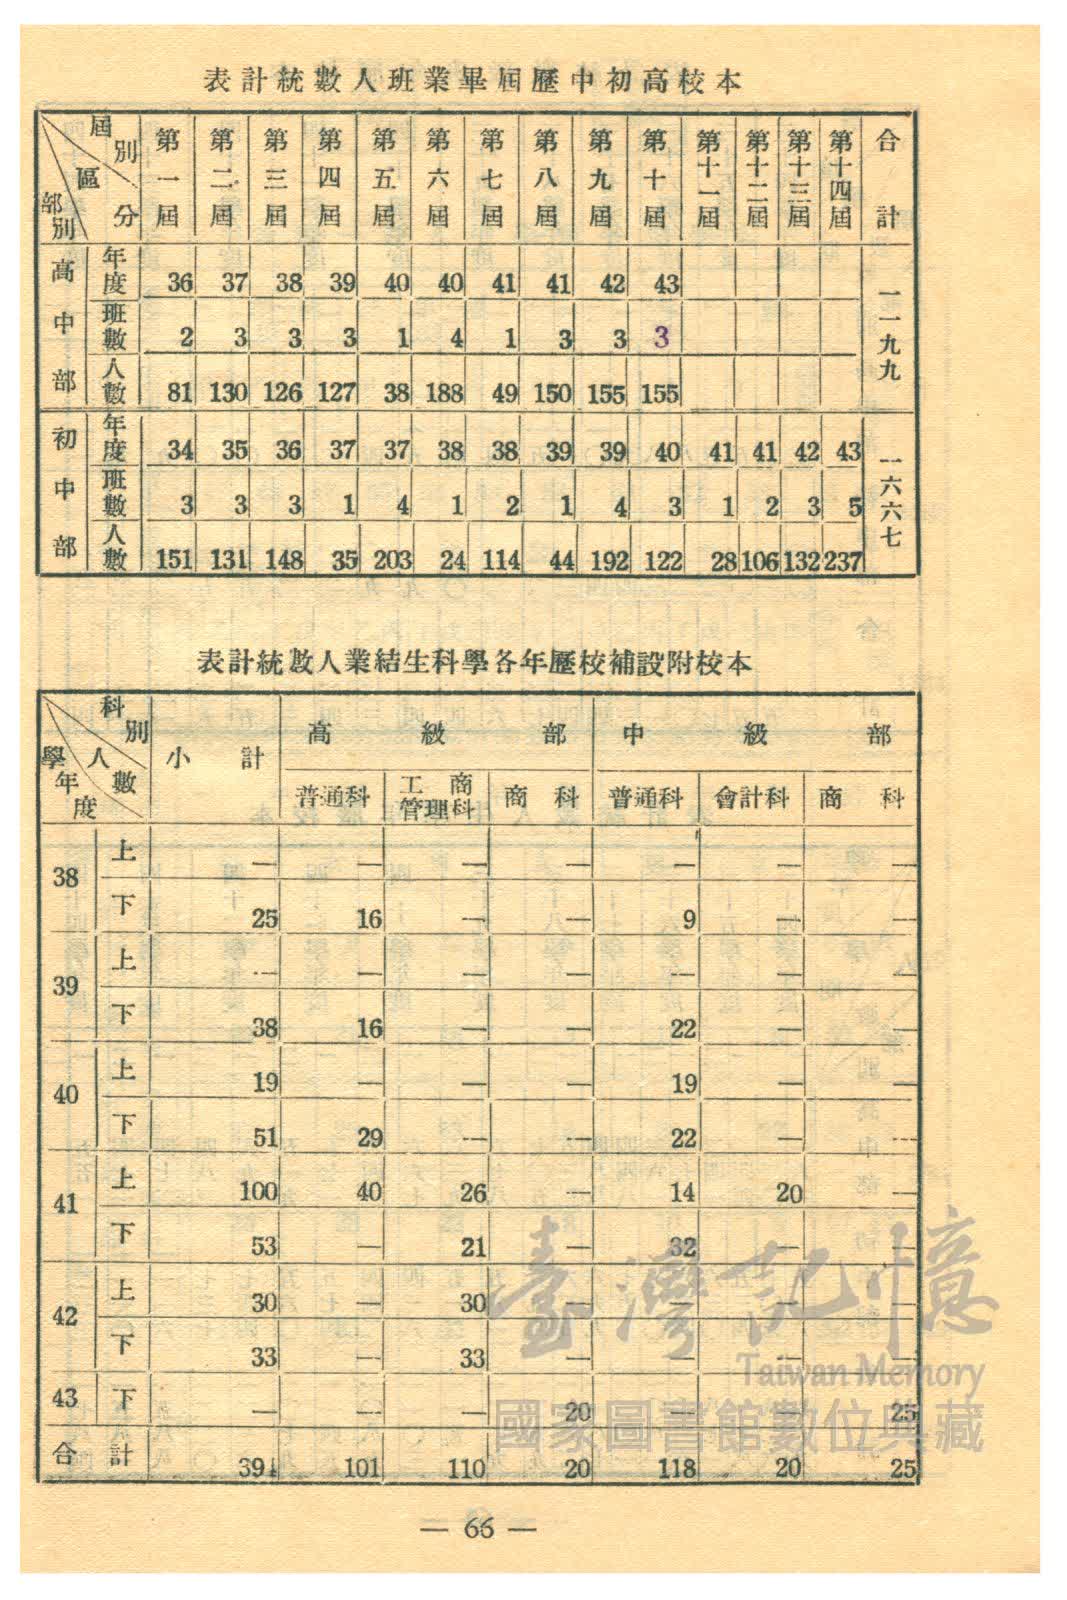 表計統數人班業畢屆歷中初高校本
屆別 區分 部別 第一屆 第二屆 第三屆 第四屆 第五屆 第六屆 第七屆 第八屆 第九屆 第十屆 第十一屆 第十二屆 第十三屆 第十四屆 合計
高中部 年度 36 37 38 39 40 40 41 41 42 43 一一九九
班數 2 3 3 3 1 4 1 3 3 3
人數 81 130 126 127 38 188 49 150 155 155
初中部 年度 34 35 36 37 37 38 38 39 39 40 41 41 42 43 一六六七
班數 3 3 3 1 4 1 2 1 4 3 1 2 3 5
人數 151 131 148 35 203 24 114 44 192 122 28 106 132 237
表計統數人業結生科學各年歷校補設附校本
科別 人數 學年度 小計 高級部 中級部
普通科 工商管理科 商科 普通科 會計科 商科
38 上 — — — — — — —
下 25 16 — — 9 — —
39 上 — — — — — — —
下 38 16 — — 22 — —
40 上 19 — — — 19 — —
下 51 29 — — 22 — —
41 上 100 40 26 — 14 20 —
下 53 — 21 — 32 — —
42 上 30 — 30 — — — —
下 33 — 33 — — — —
43 下 — — — 20 — — 25
合計 394 101 110 20 118 20 25
臺灣記憶
Taiwan Memory
國家圖書館數位典藏
— 66 —